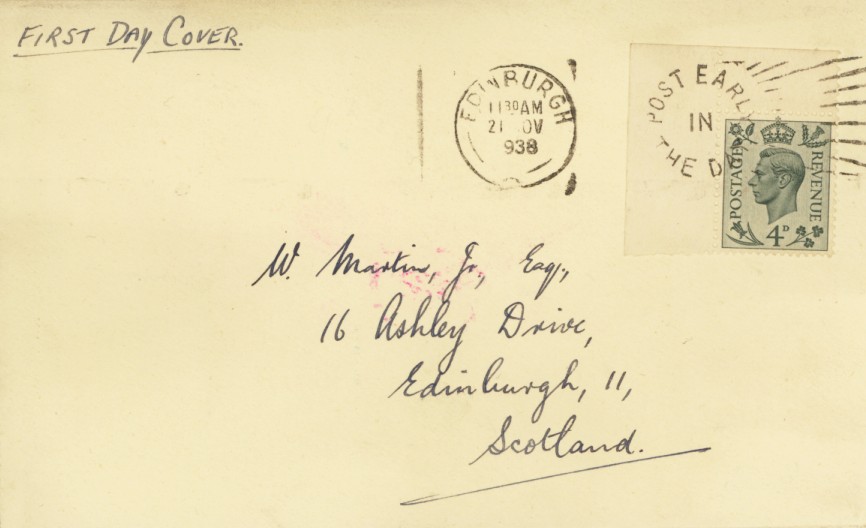 FIRST DAY COVER.
EDINBURGH
11 30 AM
21 NOV
938
POST EARLY
IN
THE DAY
POSTAGE
REVENUE
4D
W. Martin, Jr., Esq.,
16 Ashley Drive,
Edinburgh, 11,
Scotland.